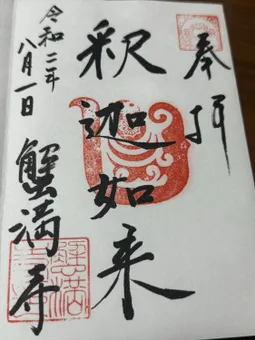 奉拝
釈迦如来
令和二年
八月一日
蟹満寺